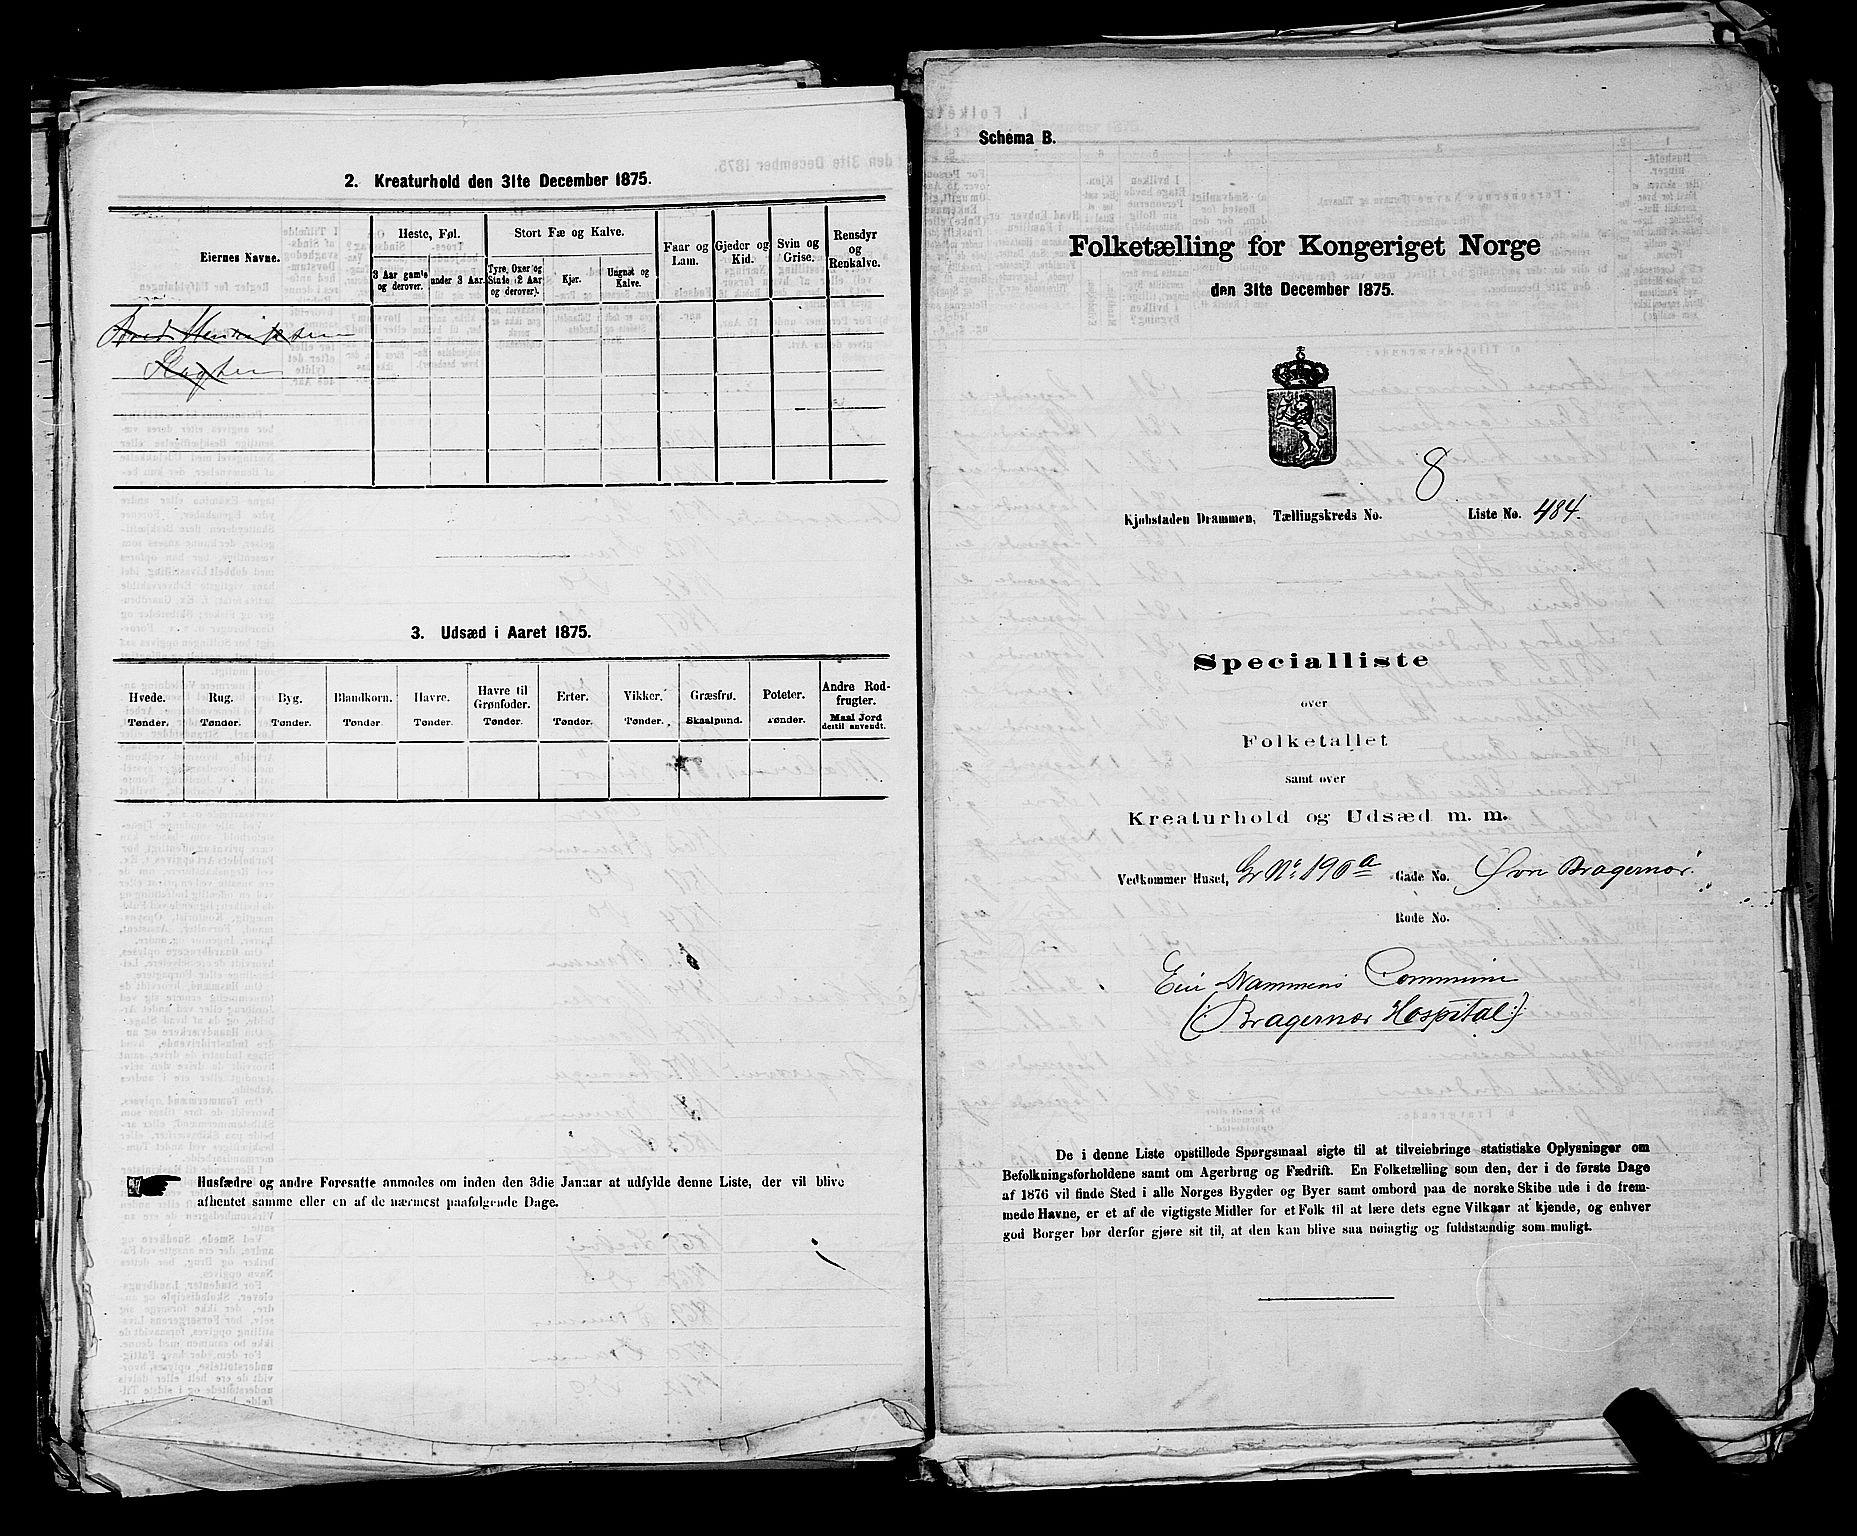 2. Kreaturhold den 31te December 1875.
Eiernes Navne.
Heste, Føl.
3 Aar gamle og derover.
under 3 Aar.
Stort Fæ og Kalve.
Tyre, Oxer og Stude (2 Aar og derover).
Kjør.
Ungnøt og Kalve.
Faar og Lam.
Gjeder og Kid.
Svin og Grise.
Rensdyr og Renkalve.
3. Udsæd i Aaret 1875.
Hvede. Tønder.
Rug. Tønder.
Byg. Tønder.
Blandkorn. Tønder.
Havre. Tønder.
Havre til Grønfoder. Tønder.
Erter. Tønder.
Vikker. Tønder.
Græsfrø. Skaalpund.
Poteter. Tønder.
Andre Rodfrugter. Maal Jord dertil anvendt.
Husfædre og andre Foresatte anmodes om inden den 3die Januar at udfylde denne Liste, der vil blive
afhentet samme eller en af de nærmest paafølgende Dage.
Schema B.
Folketælling for Kongeriget Norge
den 31te December 1875.
Kjøbstaden Drammen, Tællingskreds No. 8 Liste No. 484.
Specialliste
over
Folketallet
samt over
Kreaturhold og Udsæd m. m.
Vedkommer Huset, Gr No. 190 a Gade No. Øvre Bragernær.
Rode No.
Eier Drammens Commune
(Bragernær Hospital)
De i denne Liste opstillede Spørgsmaal sigte til at tilveiebringe statistiske Oplysninger om
Befolkningsforholdene samt om Agerbrug og Fædrift. En Folketælling som den, der i de første Dage
af 1876 vil finde Sted i alle Norges Bygder og Byer samt ombord paa de norske Skibe ude i de frem-
mede Havne, er et af de vigtigste Midler for et Folk til at lære dets egne Vilkaar at kjende, og enhver
god Borger bør derfor gjøre sit til, at den kan blive saa nøiagtig og fuldstændig som muligt.